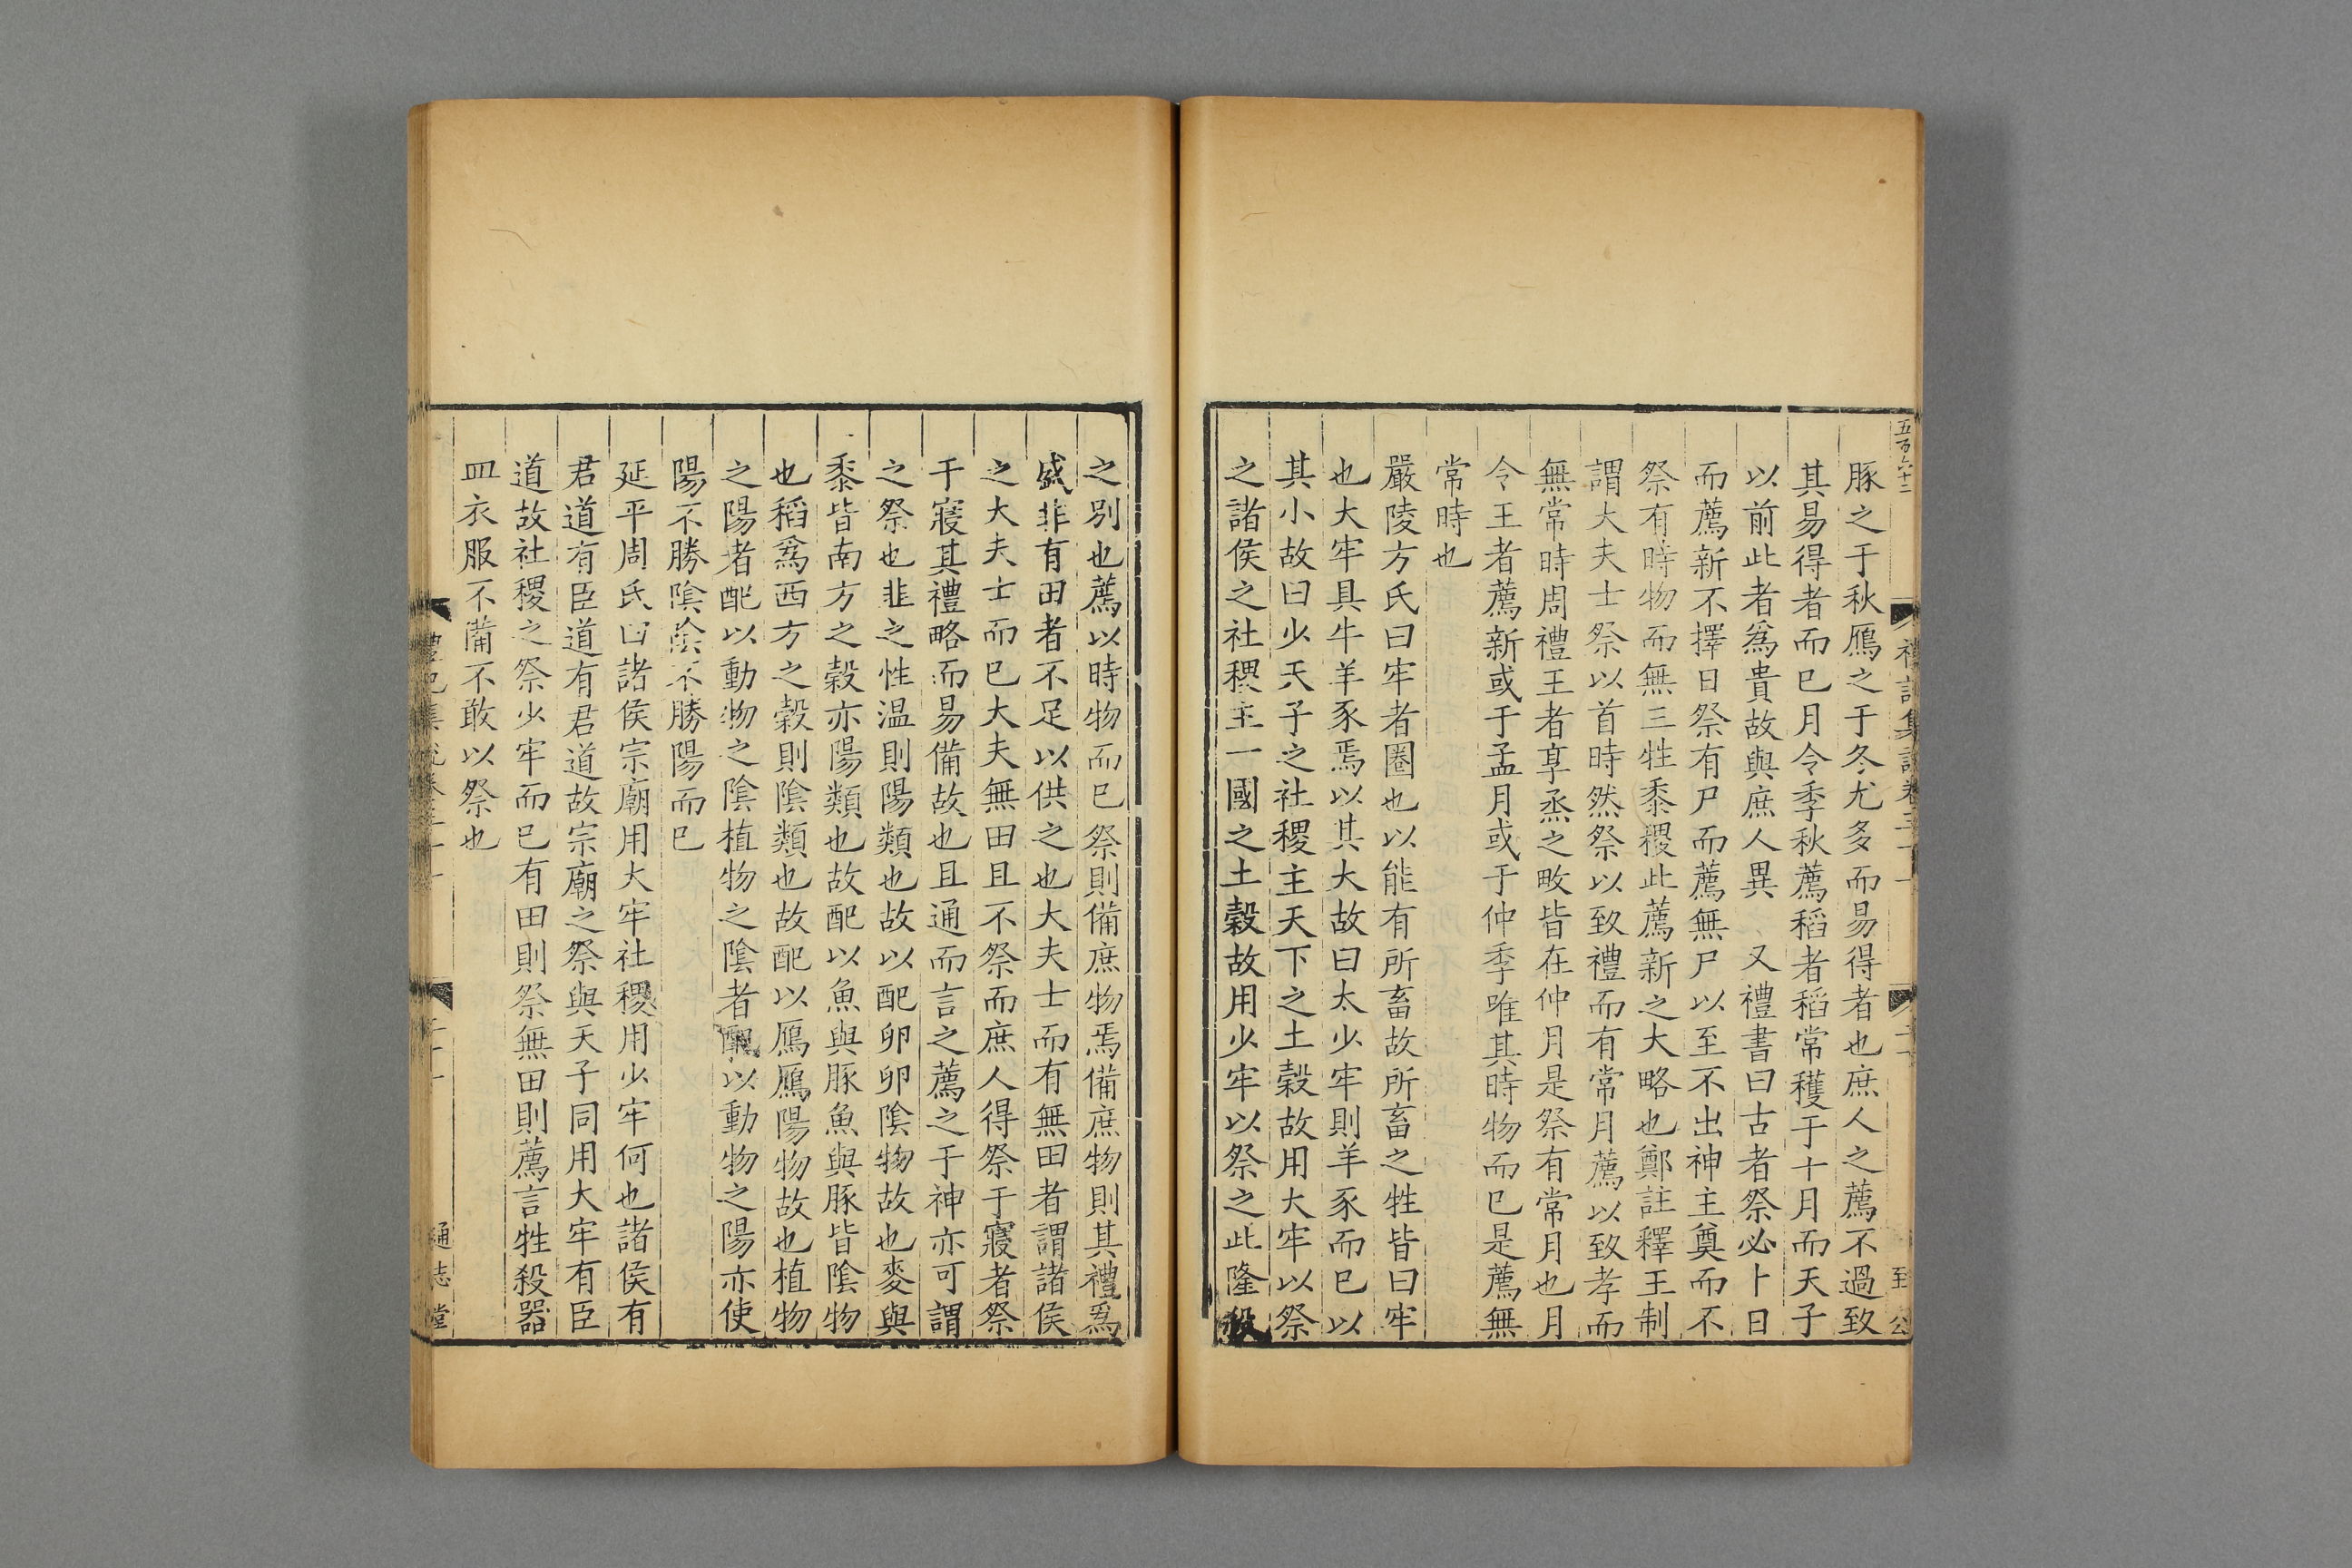 五百六十二
豚之于秋鴈之于冬尤多而易得者也庶人之薦不過致
其易得者而已月令季秋薦稻者稻常穫于十月而天子
以前此者爲貴故與庶人異 又禮書曰古者祭必卜日
而薦新不擇日祭有尸而薦無尸以至不出神主奠而不
祭有時物而無三牲黍稷此薦新之大略也鄭註釋王制
謂大夫士祭以首時然祭以致禮而有常月薦以致孝而
無常時周禮王者享烝之畋皆在仲月是祭有常月也月
令王者薦新或于孟月或于仲季唯其時物而已是薦無
常時也
嚴陵方氏曰牢者圈也以能有所畜故所畜之牲皆曰牢
也大牢具牛羊豕焉以其大故曰太少牢則羊豕而已以
其小故曰少天子之社稷主天下之土穀故用大牢以祭
之諸侯之社稷主一國之土穀故用少牢以祭之此隆殺
之別也薦以時物而已祭則備庶物焉備庶物則其禮爲
盛非有田者不足以供之也大夫士而有無田者謂諸侯
之大夫士而已大夫無田且不祭而庶人得祭于寢者祭
于寢其禮略而易備故也且通而言之薦之于神亦可謂
之祭也韭之性温則陽類也故以配卵卵陰物故也麥與
黍皆南方之穀亦陽類也故配以魚與豚魚與豚皆陰物
也稻爲西方之穀則陰類也故配以鴈鴈陽物故也植物
之陽者配以動物之陰植物之陰者配以動物之陽亦使
陽不勝陰陰不勝陽而已
延平周氏曰諸侯宗廟用大牢社稷用少牢何也諸侯有
君道有臣道有君道故宗廟之祭與天子同用大牢有臣
道故社稷之祭少牢而已有田則祭無田則薦言牲殺器
皿衣服不備不敢以祭也
通志堂